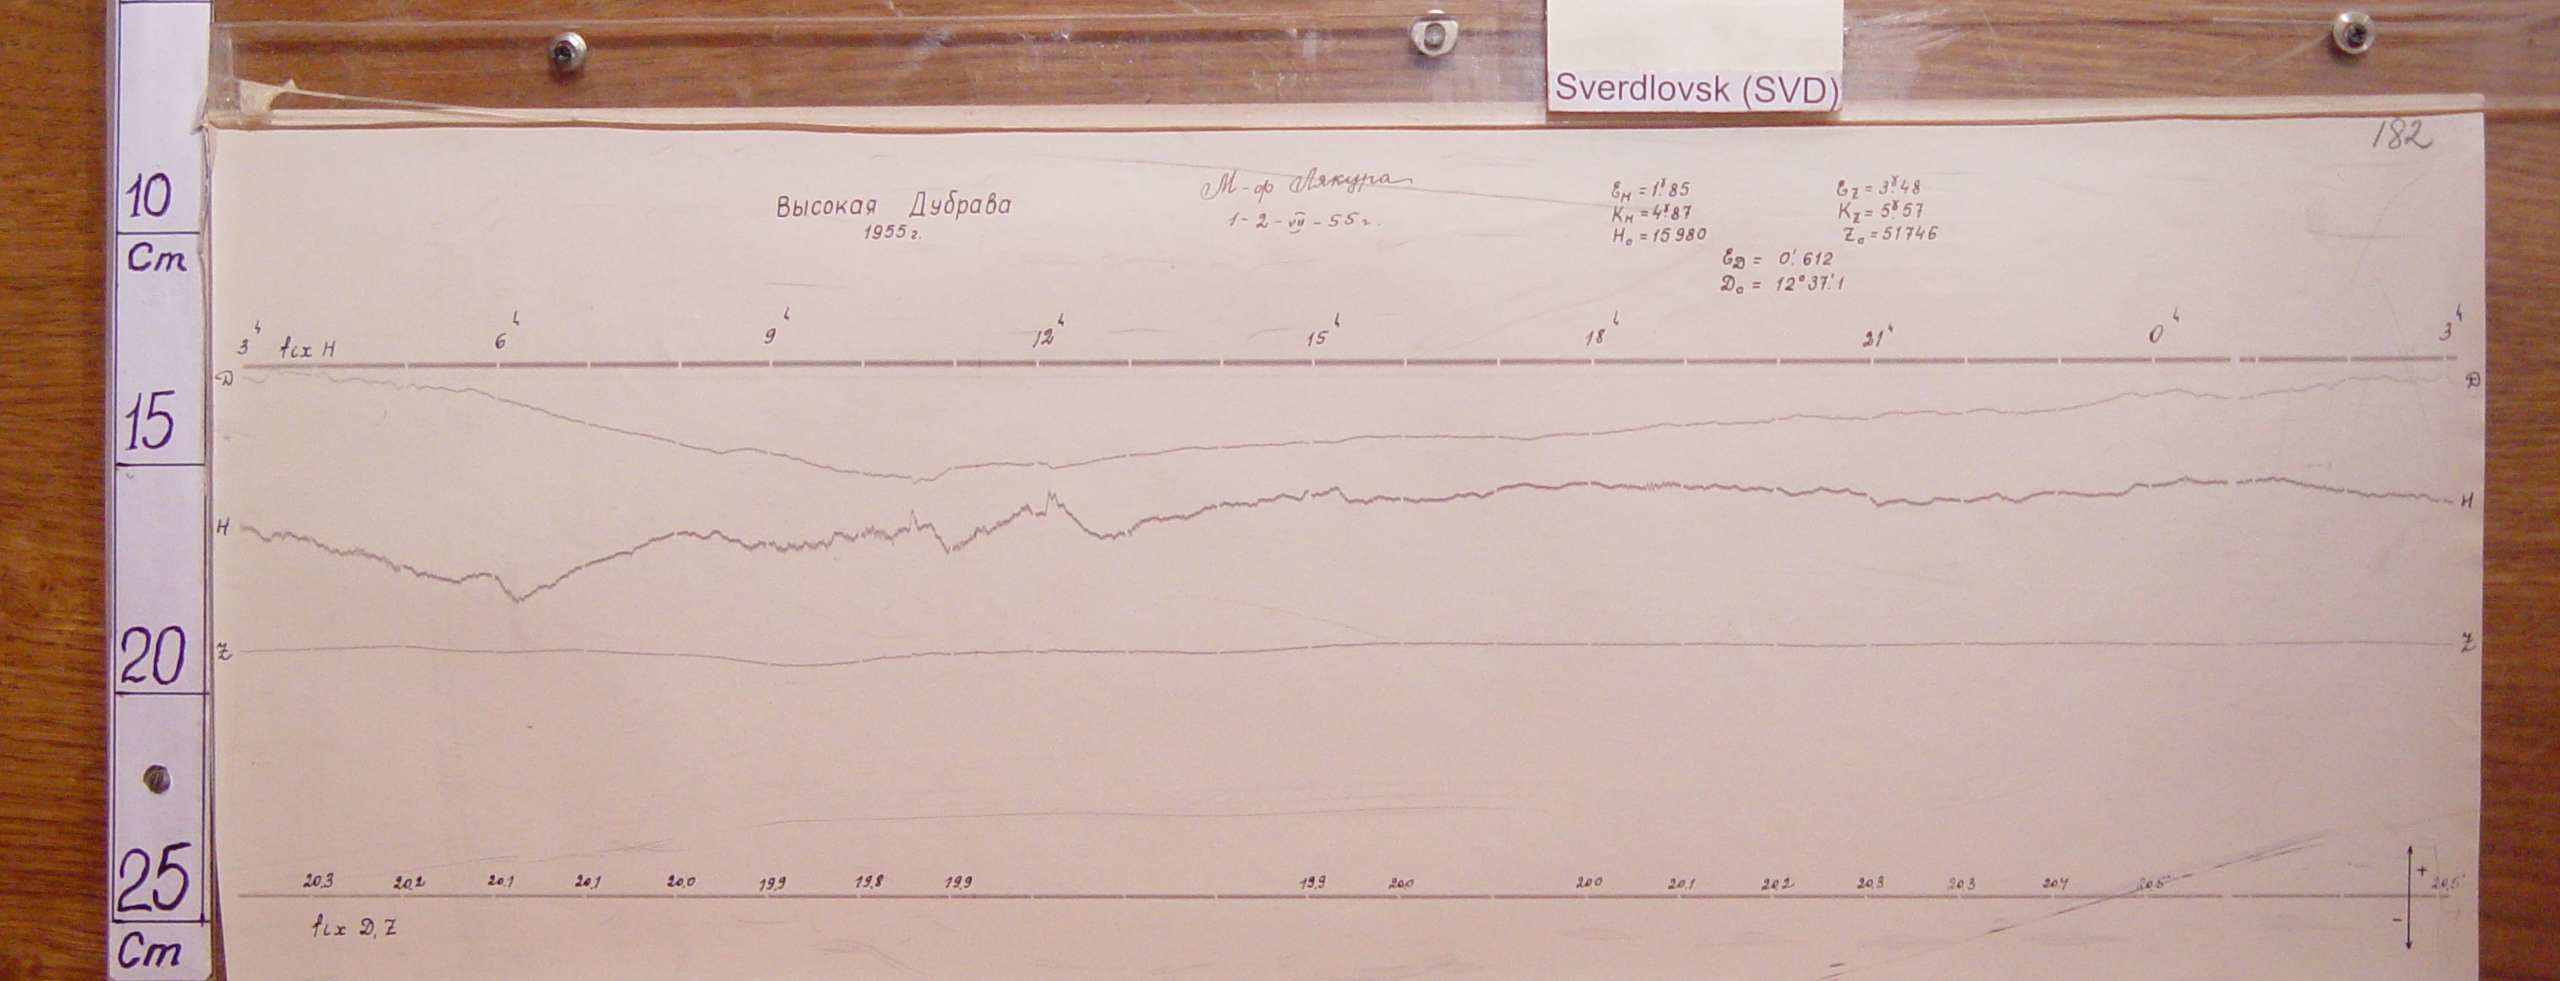 Sverdlovsk (SVD)
182
10
Cm
15
20
25
Cm
Высокая Дубрава
1955 г.
М-ф Лякура
1-2-VII-55 г.
Ɛн = 1ˠ.85
Кн = 4ˠ.87
Н₀ = 15980
Ɛz = 3ˠ.48
Кz = 5ˠ.57
Z₀ = 51746
ƐD = 0'.612
D₀ = 12°37'.1
3ʰ 6ʰ 9ʰ 12ʰ 15ʰ 18ʰ 21ʰ 0ʰ 3ʰ
fix H
D D
H H
Z Z
20.3 20.2 20.1 20.1 20.0 19.9 19.8 19.9 19.9 20.0 20.0 20.1 20.2 20.3 20.3 20.4 20.5 20.5
+
-
fix D, Z